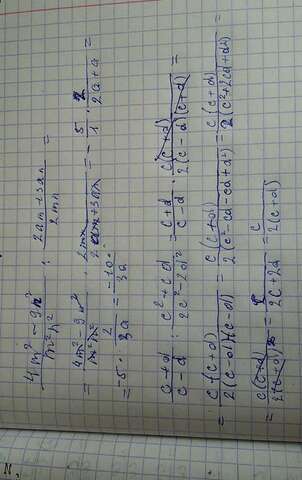 (4m² - 9n²)/(m²n²) : (2am + 3an)/(2mn) =
= (4m² - 9n²)/(m²n²) · (2mn)/(2am + 3an) = - 5/1 · 2/(2a + a) =
= -5 · 2/(3a) = -10/(3a)
(c + d)/(c - d) : (c² + cd)/(2c² - 2d²) = (c + d)/(c - d) · (c(c + d))/(2(c - d)(c + d)) =
= (c(c + d))/(2(c - d)(c - d)) = (c(c + d))/(2(c² - cd - cd + d²)) = (c(c + d))/(2(c² + 2cd + d²)) =
= (c(c + d))/(2(c + d)²) = c/(2c + 2d) = c/(2(c + d))